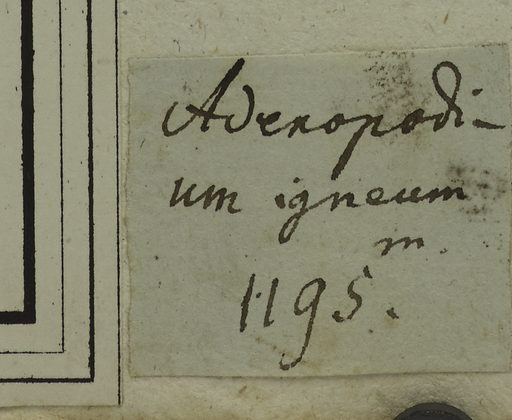 Adenopodi-
um igneum
m.
1195.